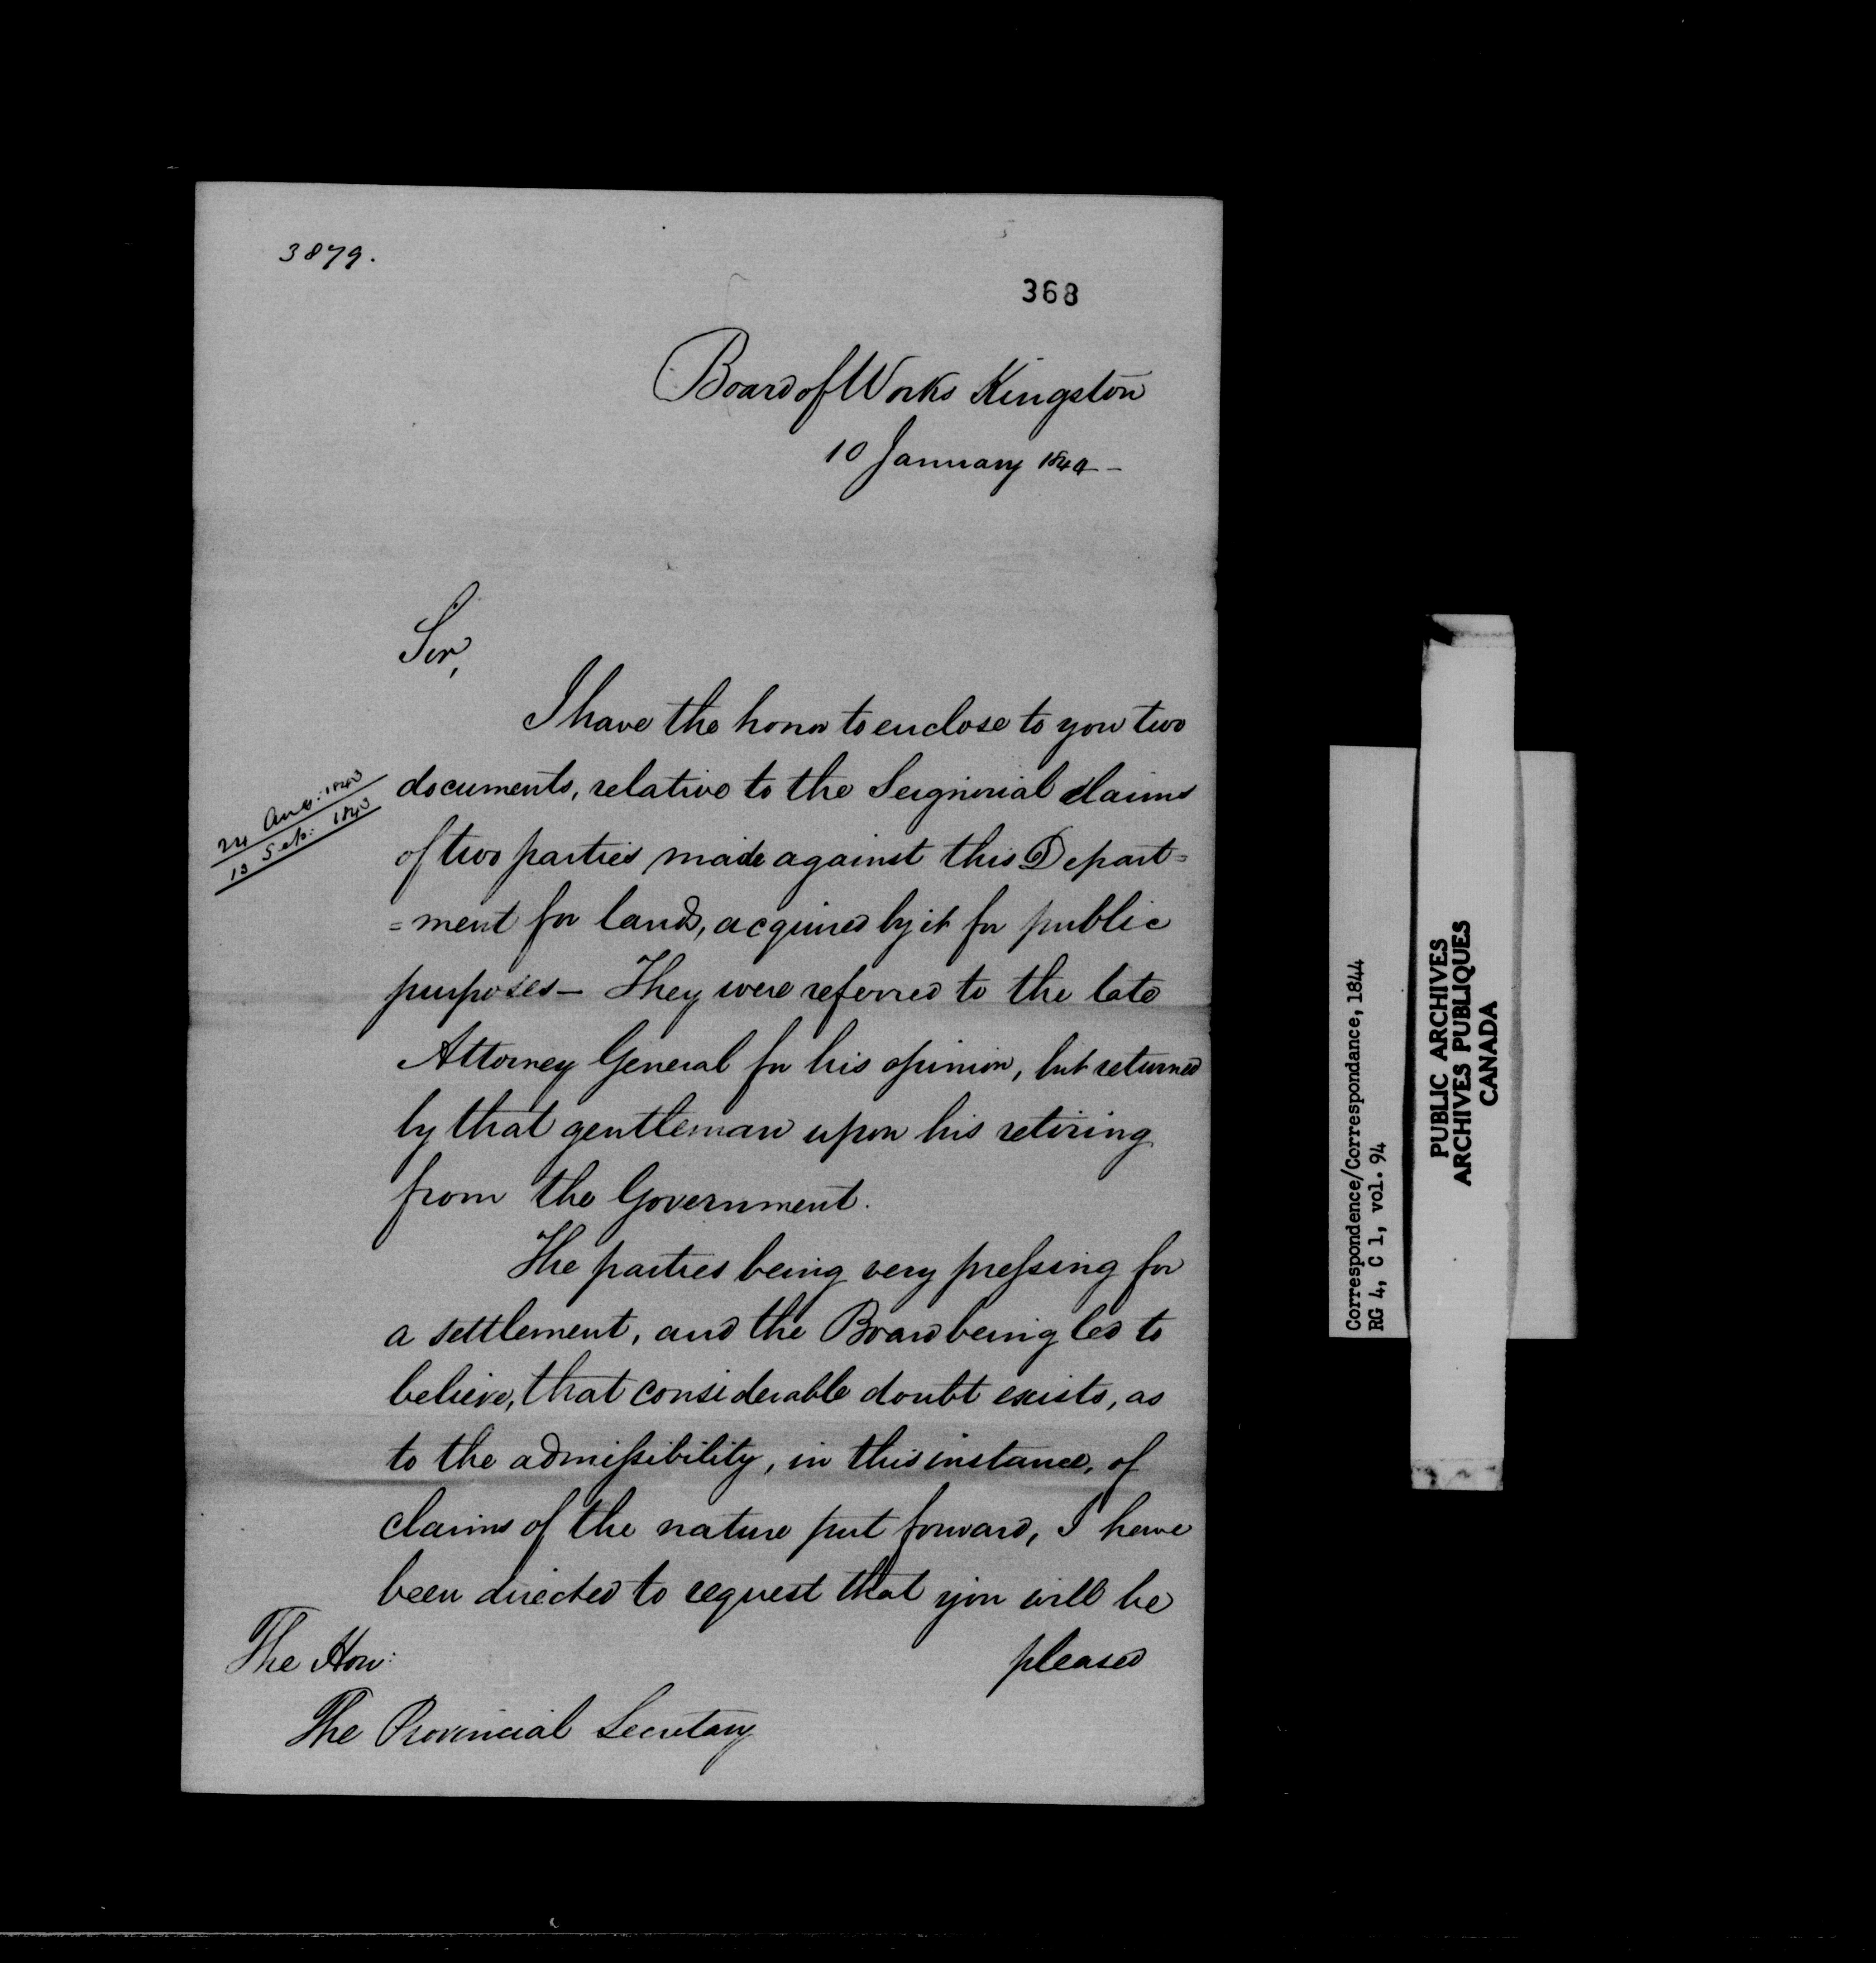 3879.
368
Board of Works Kingston
10 January 1844 –
Sir,
I have the honor to enclose to you two
documents, relative to the Seignorial claims
24 Aug: 1843
13 Sep: 1843
of two parties made against this Depart=
=ment for lands, acquired by it for public
purposes – They were referred to the late
Attorney General for his opinion, but returned
by that gentleman upon his retiring
from the Government.
The parties being very pressing for
a settlement, and the Board being led to
believe, that considerable doubt exists, as
to the admissibility, in this instance, of
claims of the nature put forward, I have
been directed to request that you will be
pleased
The Hon:
The Provincial Secretary
Correspondence/Correspondance, 1844
RG 4, C 1, vol. 94
PUBLIC ARCHIVES
ARCHIVES PUBLIQUES
CANADA